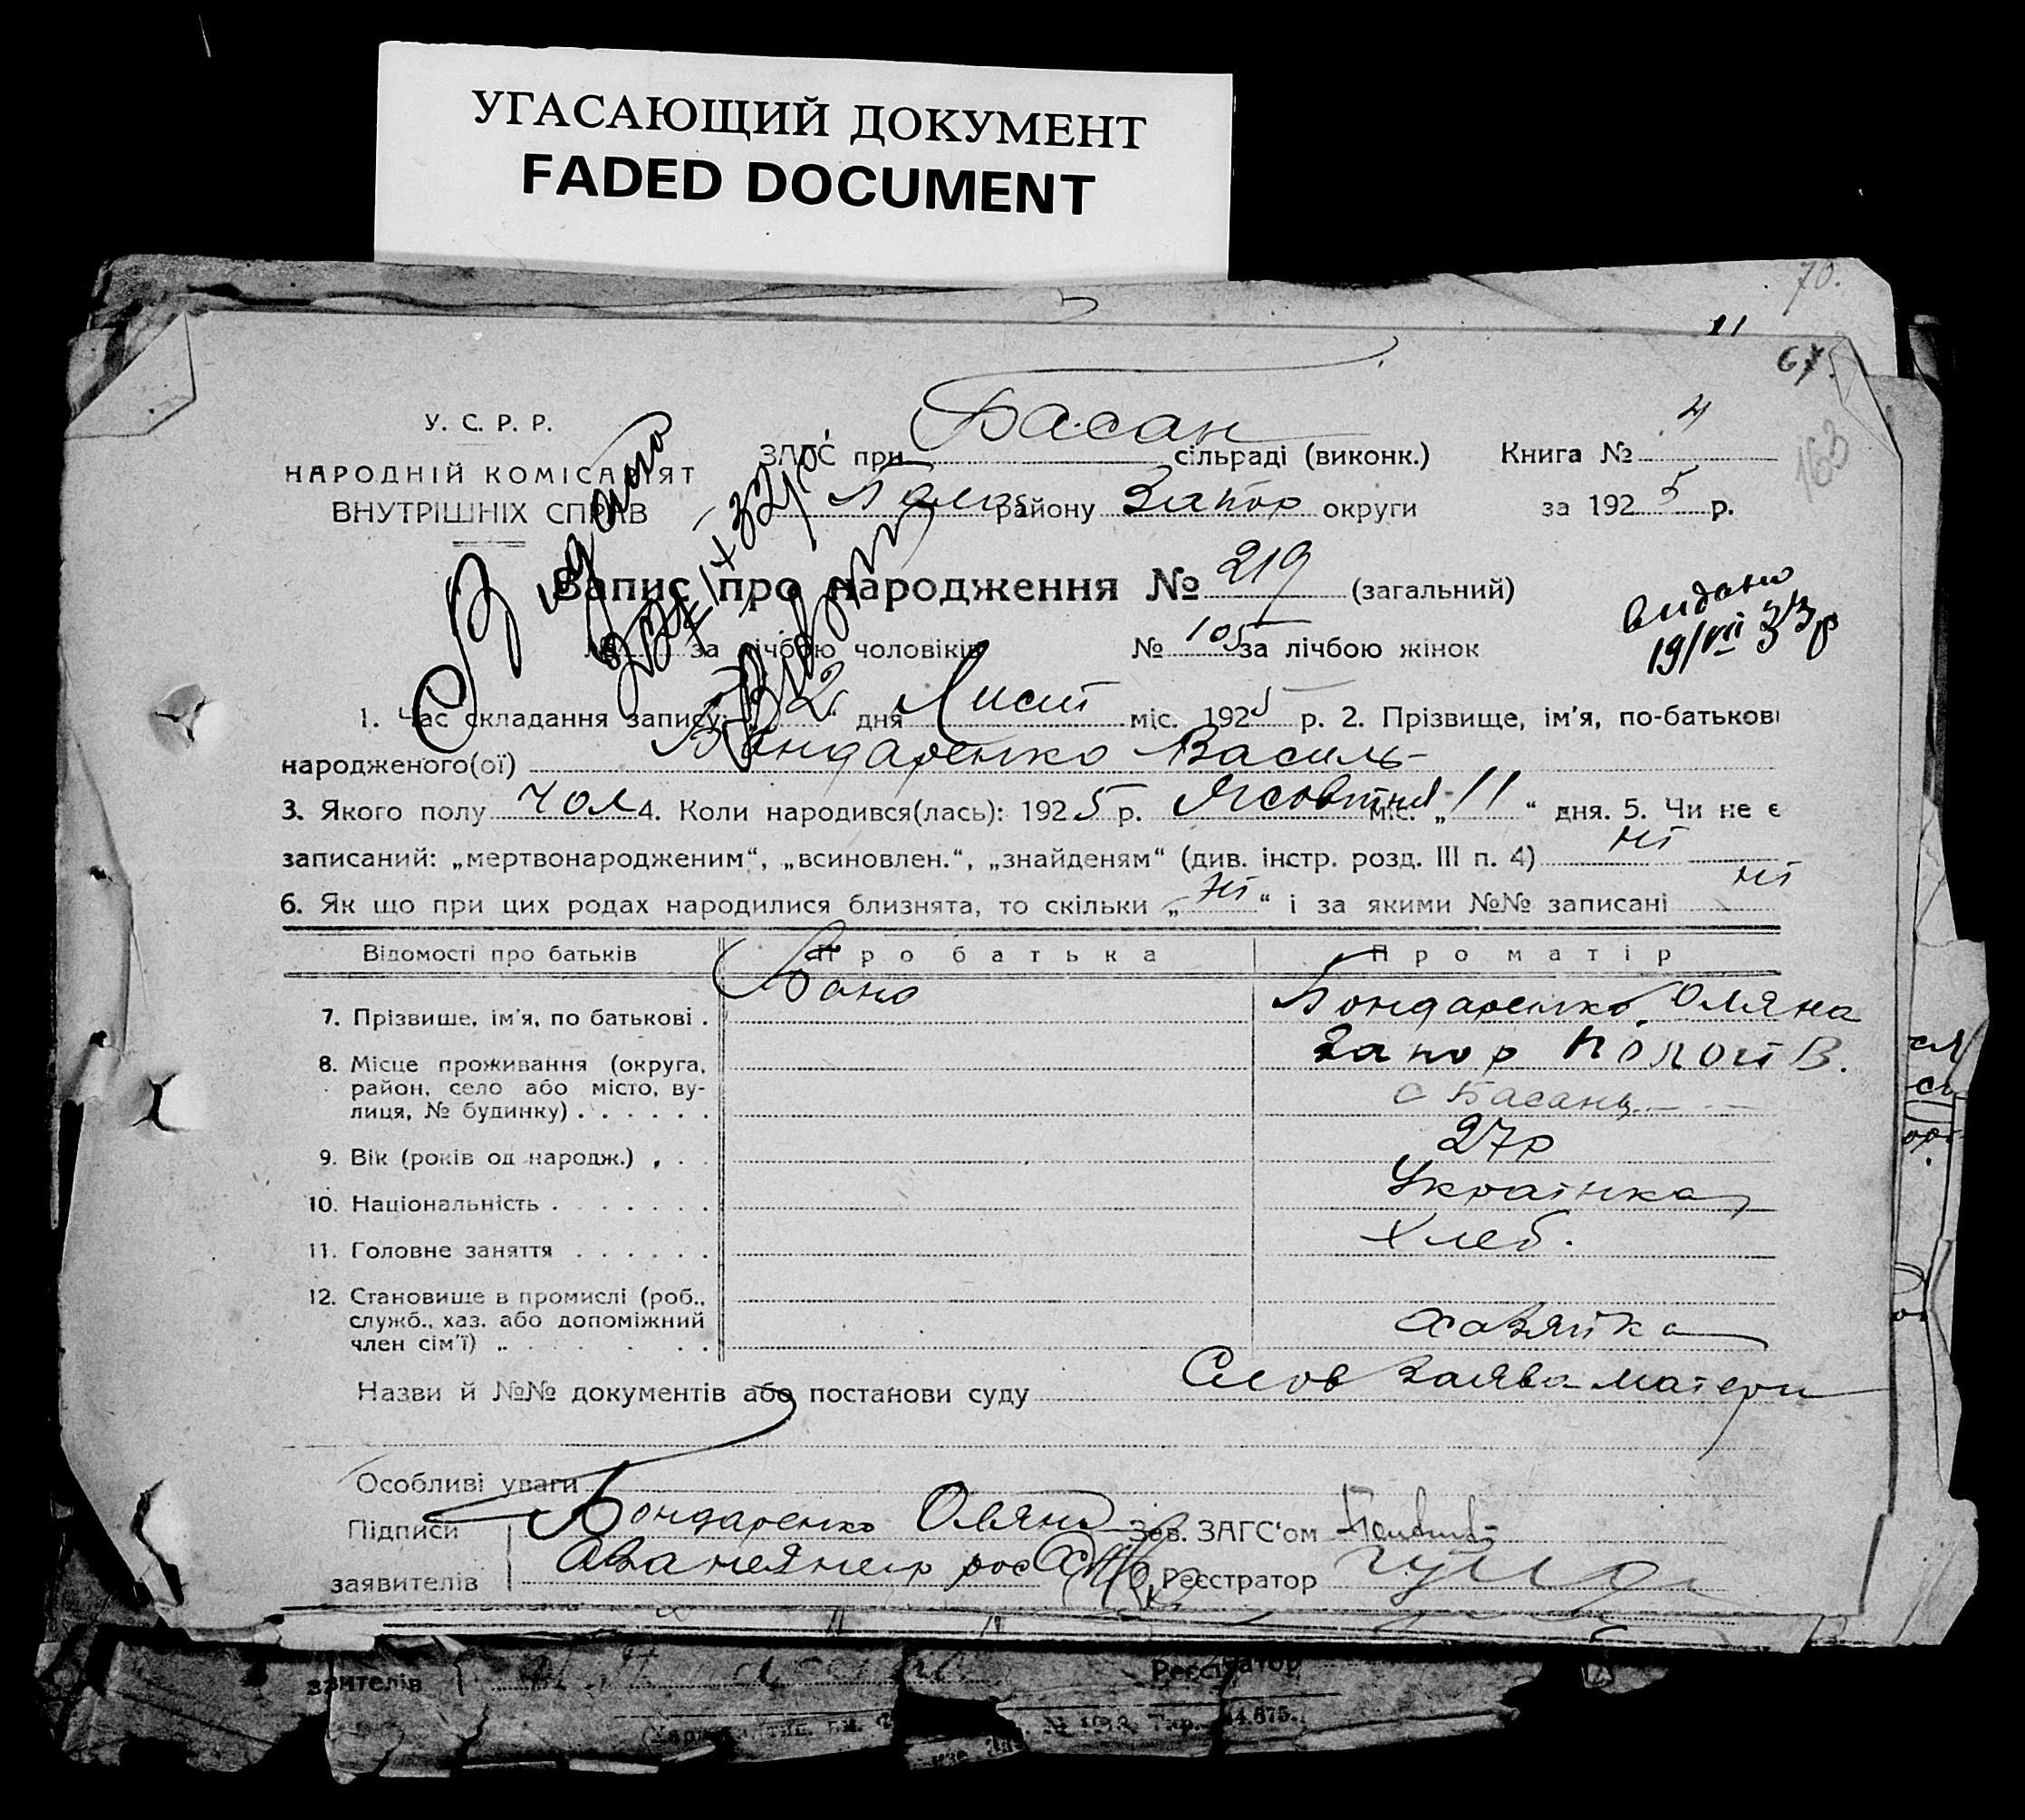 УГАСАЮЩИЙ ДОКУМЕНТ
FADED DOCUMENT
70.
11
67.
163
У. С. Р. Р.
НАРОДНІЙ КОМІСАРІЯТ
ВНУТРІШНІХ СПРАВ
ЗАГС при Басан сільраді (виконк.) Книга № 4
району Запор округи за 1925 р.
Видано
Запис про народження № 219 (загальний)
видано
19/VII 33 р
№ за лічбою чоловіків № 105 за лічбою жінок
1. Час складання запису: „2“ дня Лист міс. 1925 р. 2. Прізвище, ім'я, по-батькові
народженого(ої) Бондаренко Василь
3. Якого полу чол 4. Коли народився(лась): 1925 р. Жовтня міс. „11“ дня. 5. Чи не є
записаний: „мертвонародженим“, „всиновлен.“, „знайденям“ (див. інстр. розд. III п. 4) ні
6. Як що при цих родах народилися близнята, то скільки „ні“ і за якими №№ записані ні
Відомості про батьків Про батька Про матір
7. Прізвище, ім'я, по батькові . Бондаренко Оляна
8. Місце проживання (округа, Запор Полог В.
район, село або місто, ву-
лиця, № будинку) . . . . . . с Басань
9. Вік (років од народж.) . . . 27р
10. Національність . . . . . . . Українка
11. Головне заняття . . . . . . Хлеб.
12. Становище в промислі (роб.,
служб., хаз. або допоміжний
член сім'ї) . . . . . . Хазяйка
Назви й №№ документів або постанови суду Слов Заява матери
Особливі уваги
Підписи Бондаренко Оляна Зав. ЗАГС'ом
заявителів Реєстратор
явителів Реєстратор